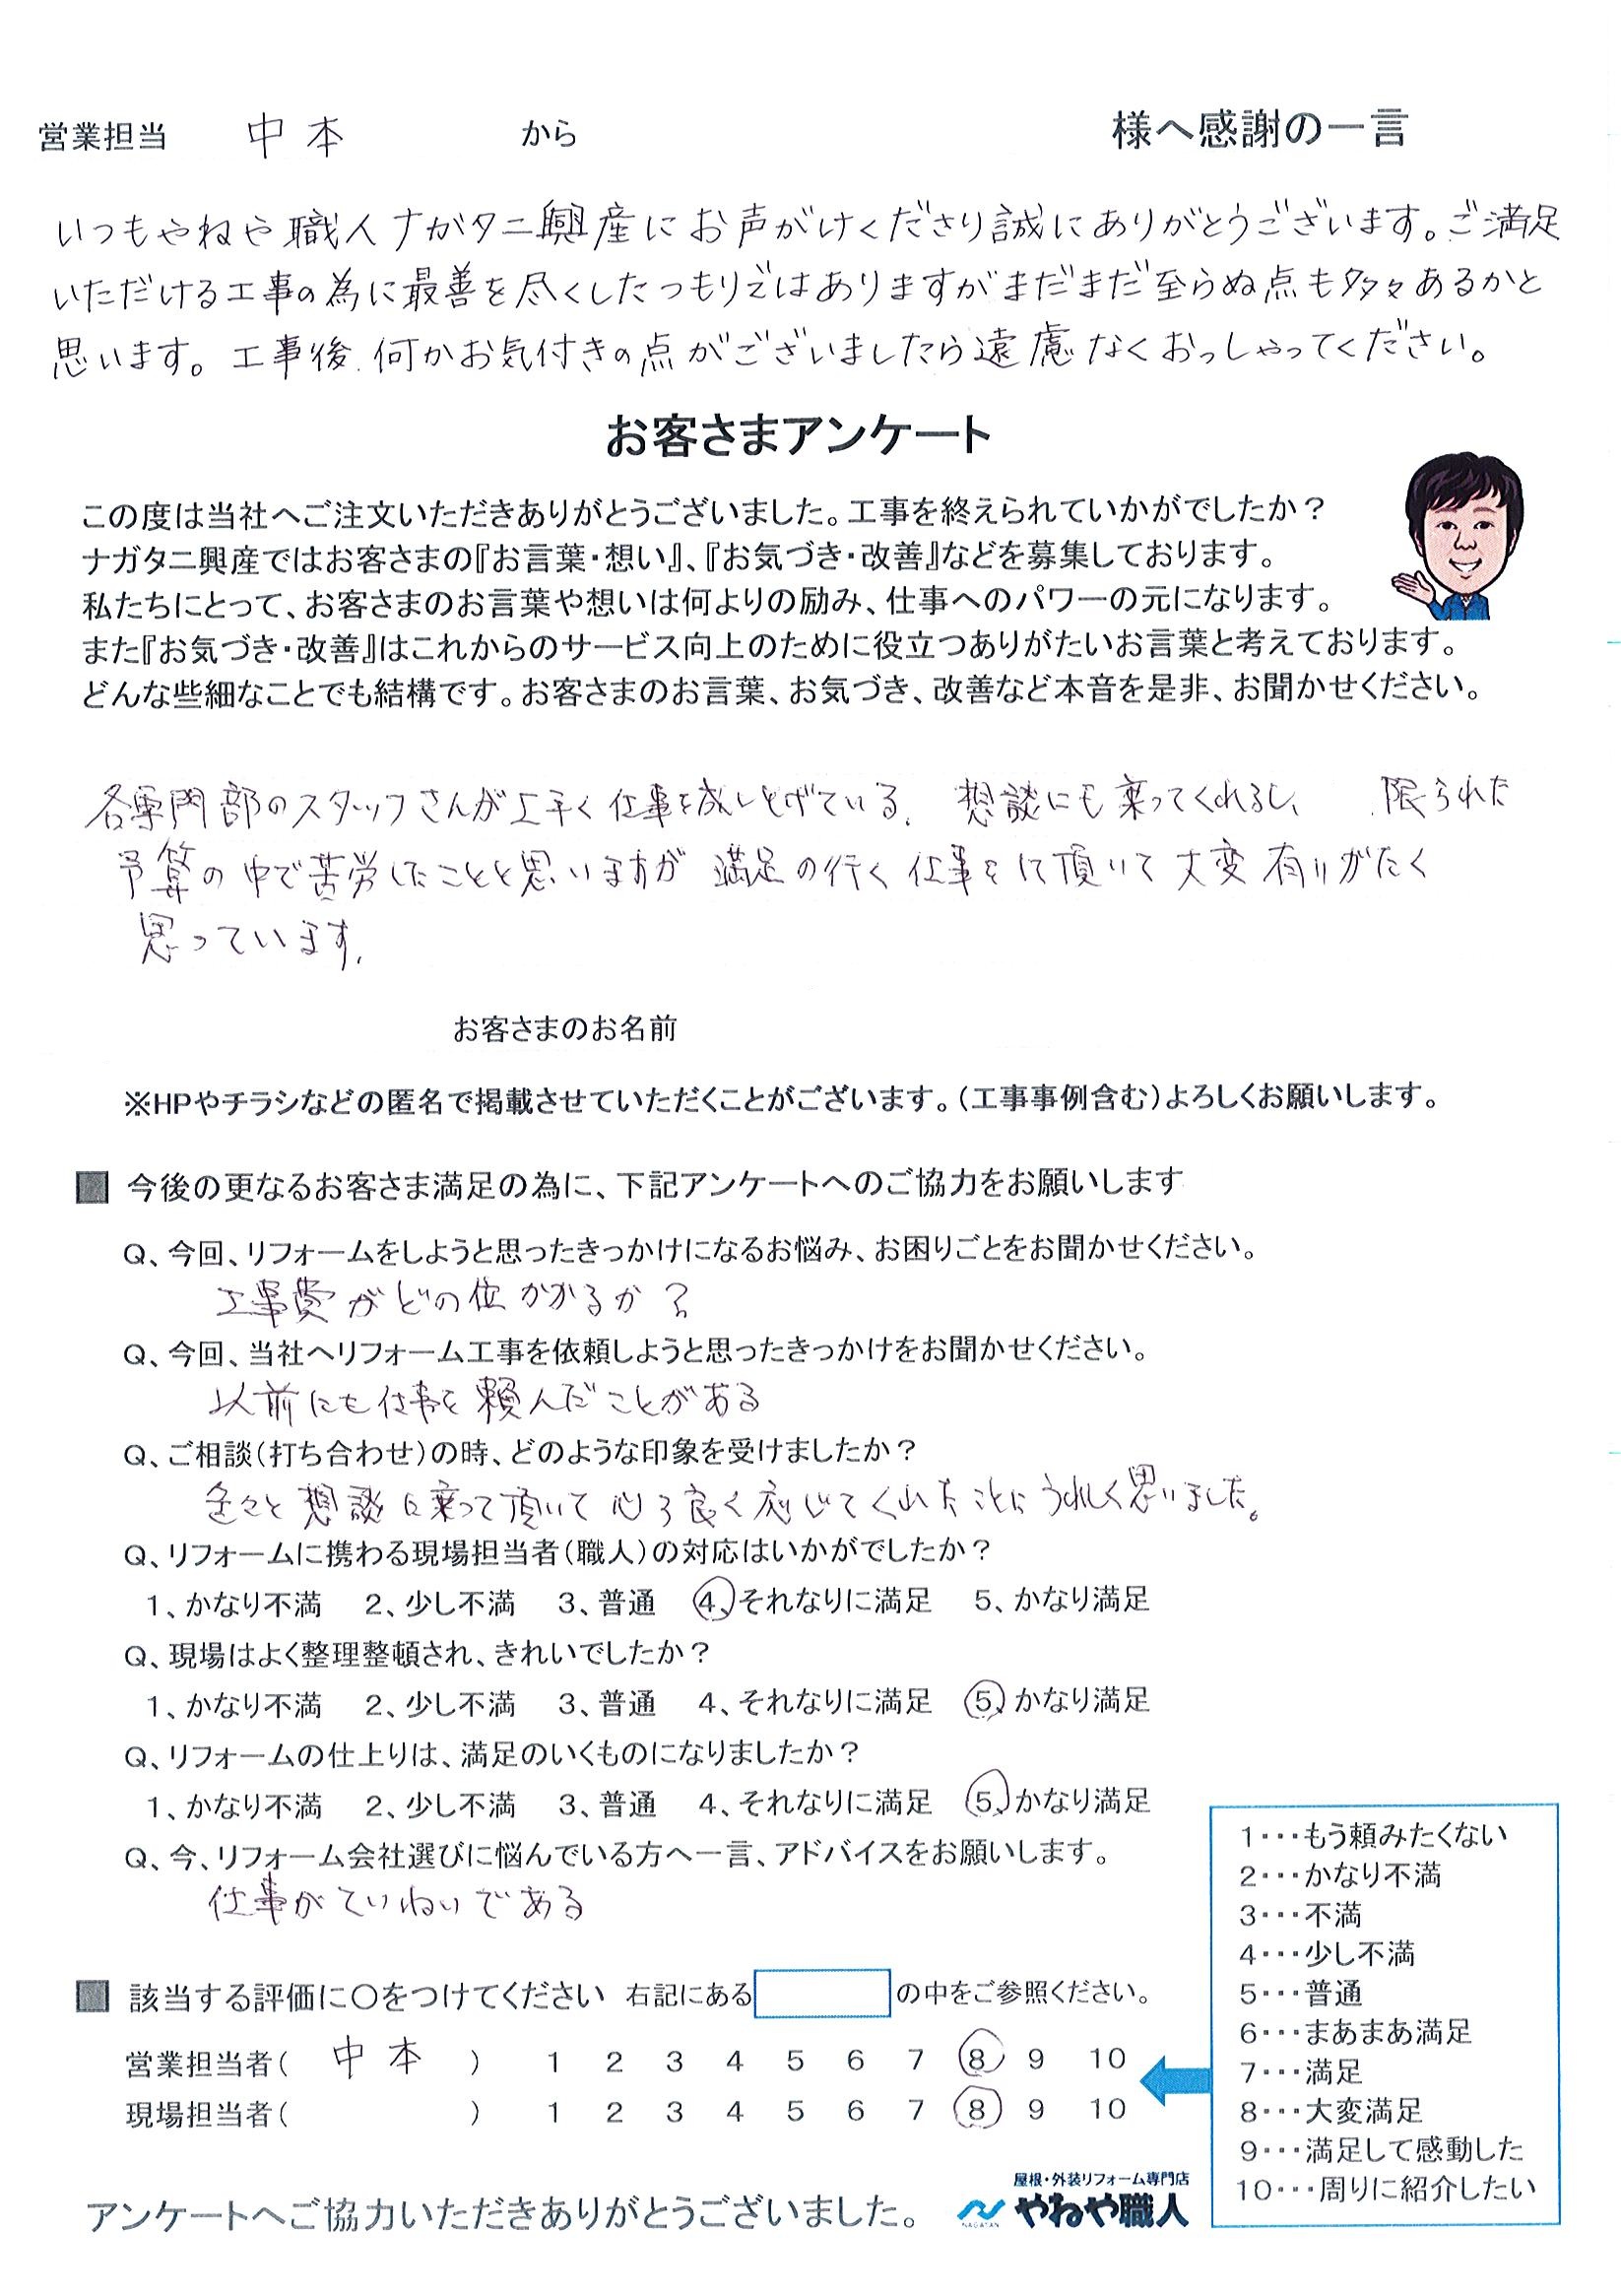 営業担当 中本 から 様へ感謝の一言
いつもやねや職人ナガタニ興産にお声がけくださり誠にありがとうございます。ご満足
いただける工事の為に最善を尽くしたつもりではありますがまだまだ至らぬ点も多々あるかと
思います。工事後、何かお気付きの点がございましたら遠慮なくおっしゃってください。
お客さまアンケート
この度は当社へご注文いただきありがとうございました。工事を終えられていかがでしたか？
ナガタニ興産ではお客さまの『お言葉・想い』、『お気づき・改善』などを募集しております。
私たちにとって、お客さまのお言葉や想いは何よりの励み、仕事へのパワーの元になります。
また『お気づき・改善』はこれからのサービス向上のために役立つありがたいお言葉と考えております。
どんな些細なことでも結構です。お客さまのお言葉、お気づき、改善など本音を是非、お聞かせください。
各専門部のスタッフさんが上手く仕事を成しとげている。想談にも乗ってくれるし、限られた
予算の中で苦労したことと思いますが満足の行く仕事をして頂いて大変有りがたく
思っています。
お客さまのお名前
※HPやチラシなどの匿名で掲載させていただくことがございます。（工事事例含む）よろしくお願いします。
■ 今後の更なるお客さま満足の為に、下記アンケートへのご協力をお願いします
Q、今回、リフォームをしようと思ったきっかけになるお悩み、お困りごとをお聞かせください。
工事費がどの位かかるか？
Q、今回、当社へリフォーム工事を依頼しようと思ったきっかけをお聞かせください。
以前にも仕事を頼んだことがある
Q、ご相談（打ち合わせ）の時、どのような印象を受けましたか？
色々と想談に乗って頂いて心ろ良く応じてくれたことにうれしく思いました。
Q、リフォームに携わる現場担当者（職人）の対応はいかがでしたか？
1、かなり不満 2、少し不満 3、普通 4、それなりに満足 5、かなり満足
Q、現場はよく整理整頓され、きれいでしたか？
1、かなり不満 2、少し不満 3、普通 4、それなりに満足 5、かなり満足
Q、リフォームの仕上りは、満足のいくものになりましたか？
1、かなり不満 2、少し不満 3、普通 4、それなりに満足 5、かなり満足
Q、今、リフォーム会社選びに悩んでいる方へ一言、アドバイスをお願いします。
仕事がていねいである
■ 該当する評価に〇をつけてください 右記にある の中をご参照ください。
営業担当者（ 中本 ） 1 2 3 4 5 6 7 8 9 10
現場担当者（ ） 1 2 3 4 5 6 7 8 9 10
1・・・もう頼みたくない
2・・・かなり不満
3・・・不満
4・・・少し不満
5・・・普通
6・・・まあまあ満足
7・・・満足
8・・・大変満足
9・・・満足して感動した
10・・・周りに紹介したい
アンケートへご協力いただきありがとうございました。
屋根・外装リフォーム専門店
NAGATAN
やねや職人